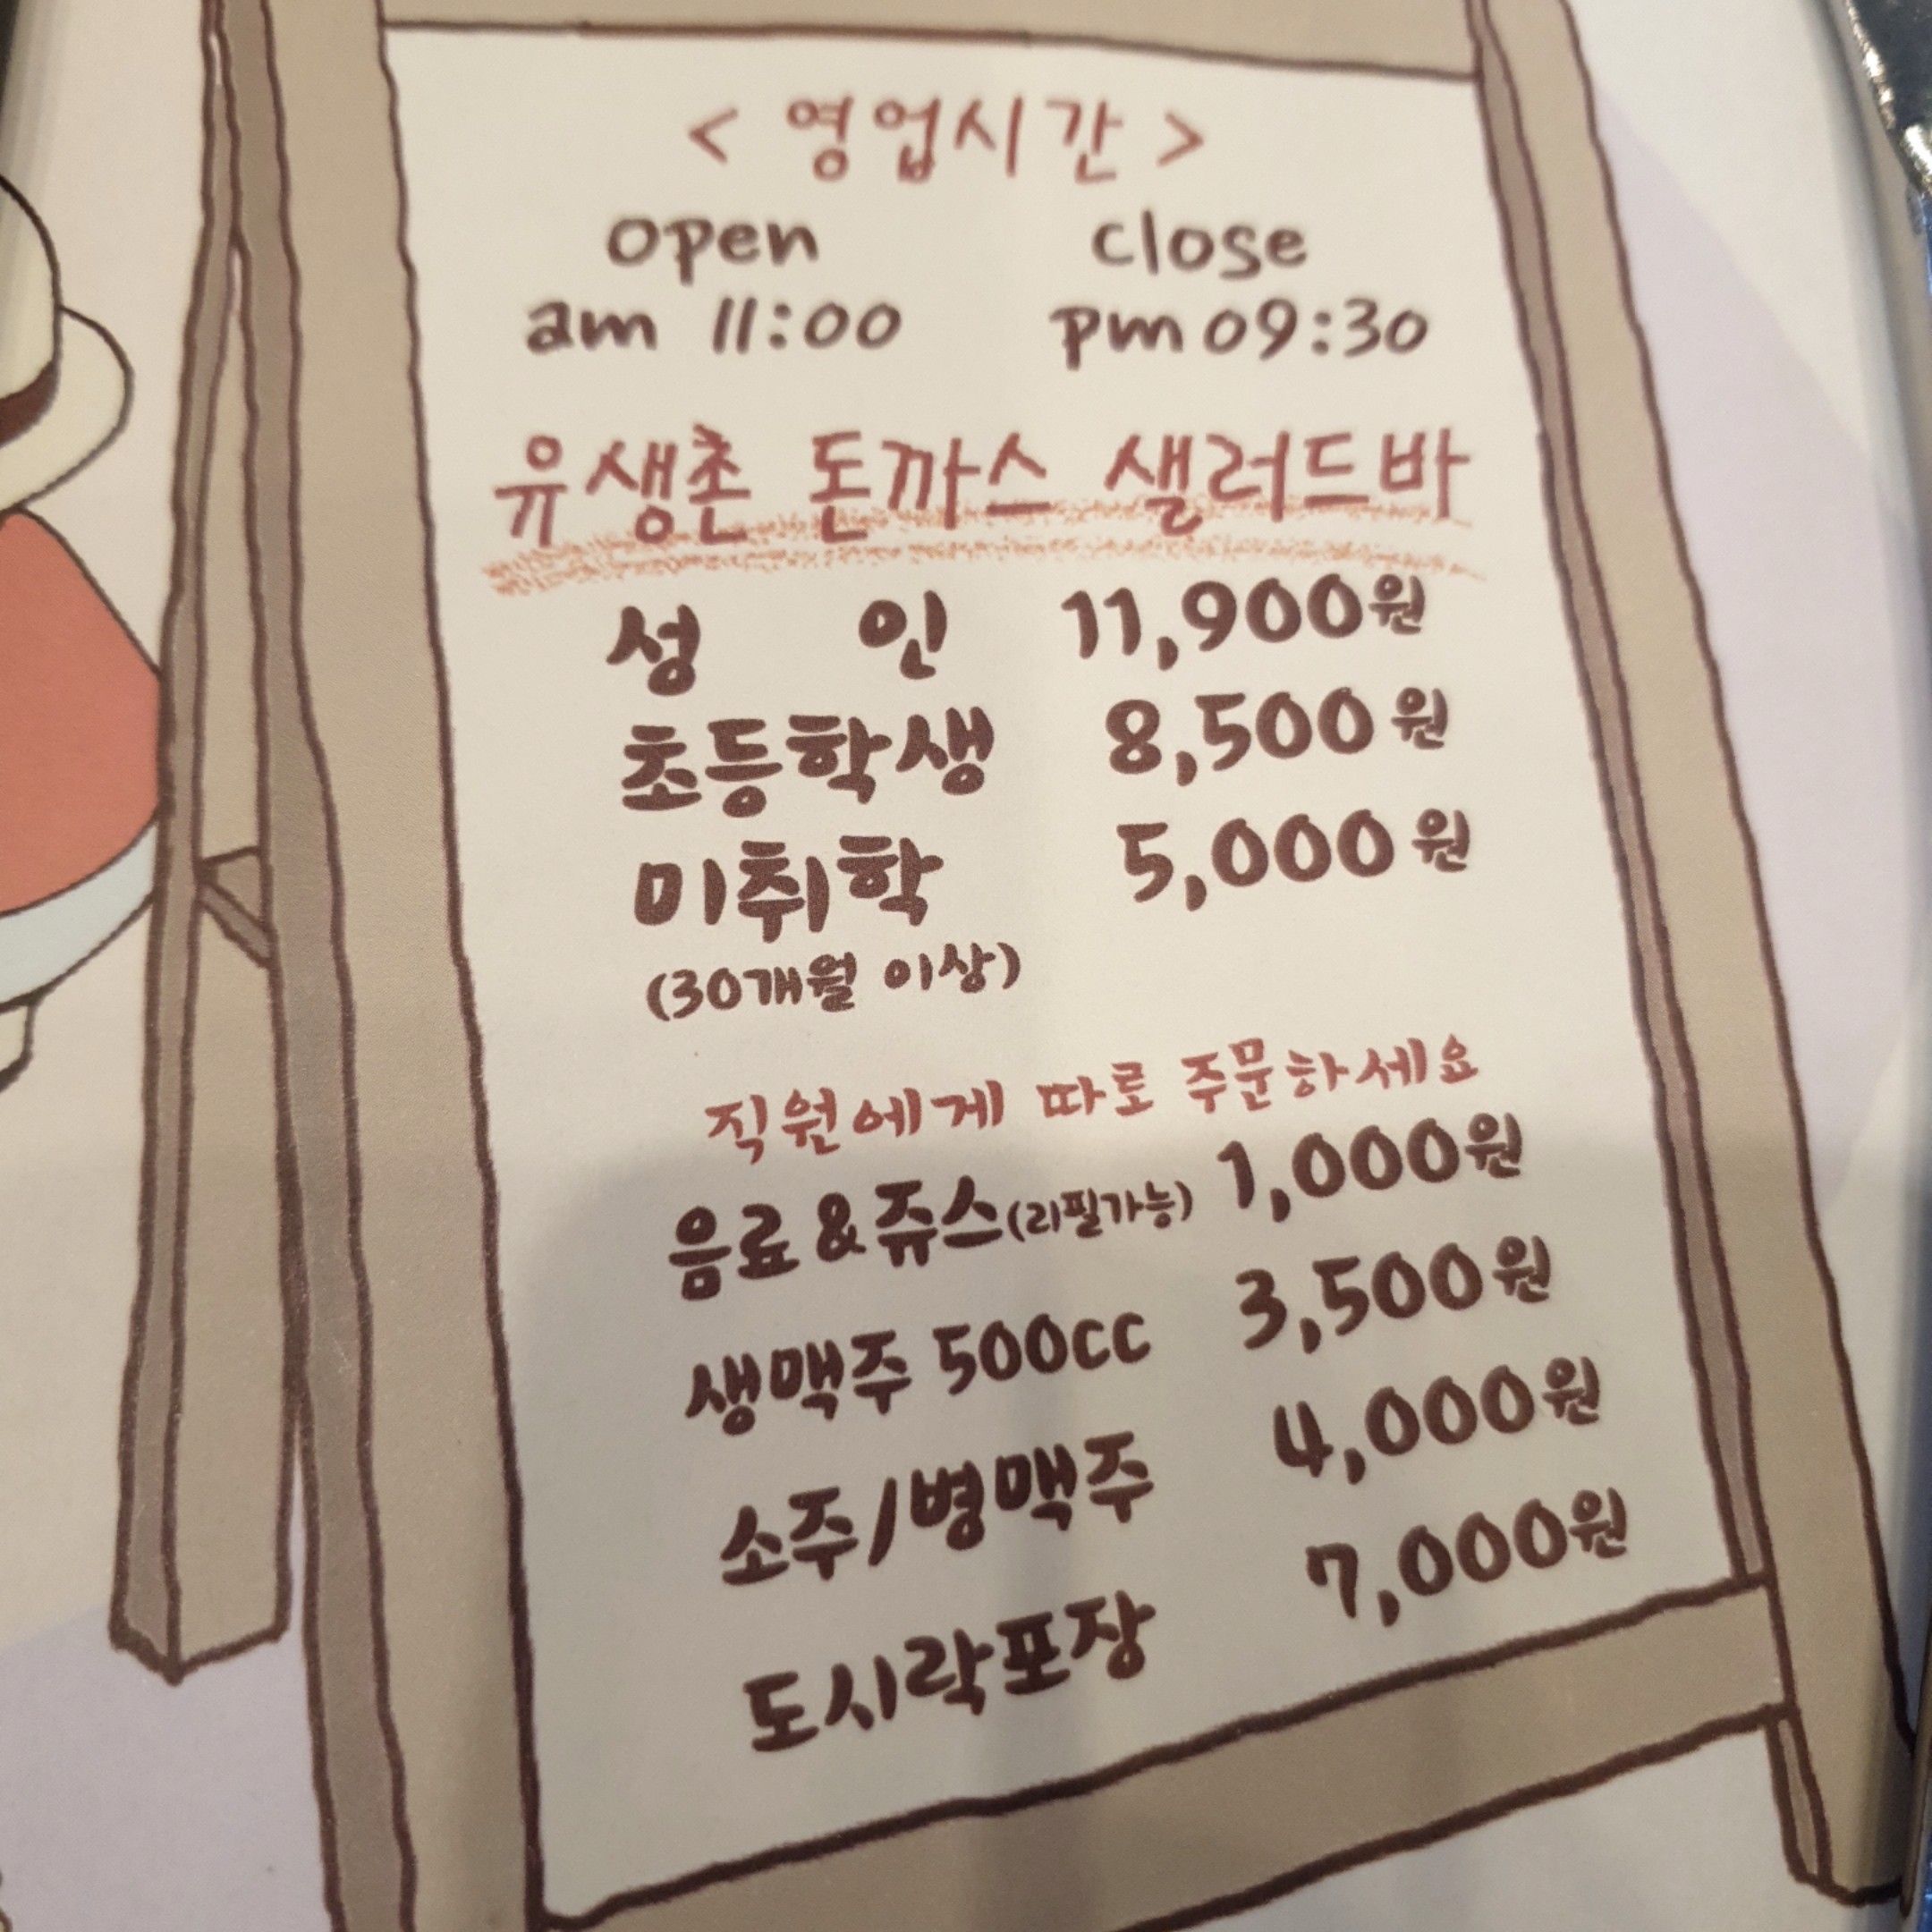 < 영업시간 >
open close
am 11:00 pm 09:30
유생촌 돈까스 샐러드바
성 인 11,900원
초등학생 8,500원
미취학 5,000원
(30개월 이상)
직원에게 따로 주문하세요
음료&쥬스(리필가능) 1,000원
생맥주 500cc 3,500원
소주/병맥주 4,000원
도시락포장 7,000원